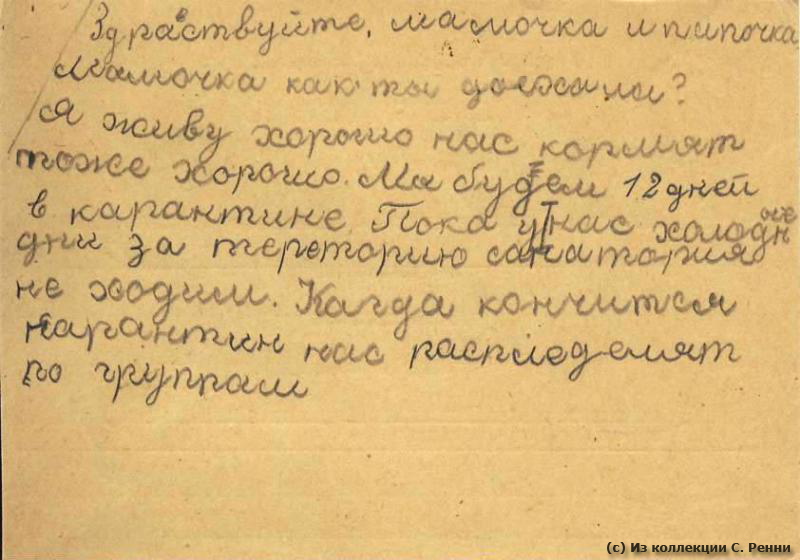 Здраствуйте, мамочка и папочка
Мамочка как ты доехала?
Я живу хорошо нас кормят
тоже хорошо. Мы будем 12 дней
в карантине. Пока у нас холодные
дни за тереторию санатория
не ходим. Кагда кончится
карантин нас распледелят
по группам
(c) Из коллекции С. Ренни